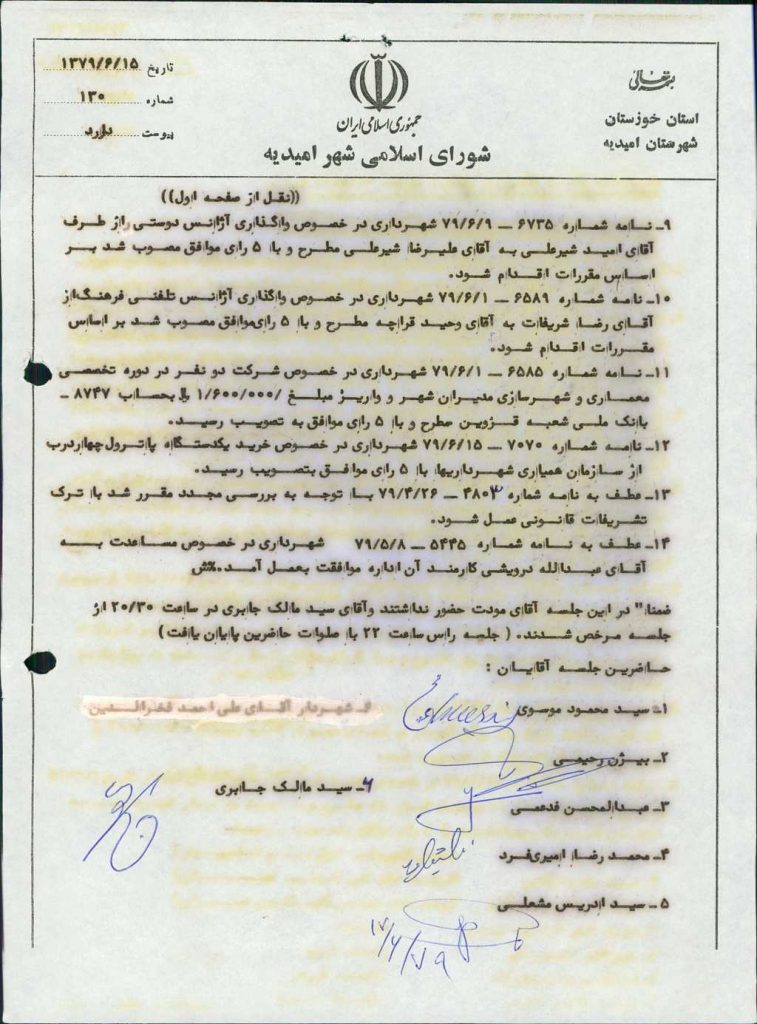 بسمه تعالی
استان خوزستان
شهرستان امیدیه
جمهوری اسلامی ایران
شورای اسلامی شهر امیدیه
تاریخ ۱۳۷۹/۶/۱۵
شماره ۱۳۰
پیوست دارد
((نقل از صفحه اول))
۹ـ نامه شماره ۶۷۳۵ ــ ۷۹/۶/۹ شهرداری در خصوص واگذاری آژانس دوستی راز طرف
آقای امید شیرعلی به آقای علیرضا شیرعلی مطرح و با ۵ رای موافق مصوب شد بر
اساس مقررات اقدام شود.
۱۰ـ نامه شماره ۶۵۸۹ ــ ۷۹/۶/۱ شهرداری در خصوص واگذاری آژانس تلفنی فرهنگ از
آقای رضا شریفات به آقای وحید قراچه مطرح و با ۵ رای موافق مصوب شد بر اساس
مقررات اقدام شود.
۱۱ـ نامه شماره ۶۵۸۵ ــ ۷۹/۶/۱ شهرداری در خصوص شرکت دو نفر در دوره تخصصی
معماری و شهرسازی مدیران شهر و واریز مبلغ /۱/۶۰۰/۰۰۰ ریال بحساب ۸۷۴۷ ـ
بانک ملی شعبه قزوین مطرح و با ۵ رای موافق به تصویب رسید.
۱۲ـ نامه شماره ۷۰۷۰ ــ ۷۹/۶/۱۵ شهرداری در خصوص خرید یکدستگاه پاترول چهاردرب
از سازمان همیاری شهرداریها با ۵ رای موافق بتصویب رسید.
۱۳ـ عطف به نامه شماره ۴۸۰۳ ــ ۷۹/۴/۲۶ با توجه به بررسی مجدد مقرر شد با ترک
تشریفات قانونی عمل شود.
۱۴ـ عطف به نامه شماره ۵۴۴۵ ــ ۷۹/۵/۸ شهرداری در خصوص مساعدت به
آقای عبدالله درویشی کارمند آن اداره موافقت بعمل آمد.%ش
ضمنا" در این جلسه آقای مودت حضور نداشتند وآقای سید مالک جابری در ساعت ۲۰/۳۰ از
جلسه مرخص شدند. ( جلسه راس ساعت ۲۲ با صلوات حاضرین پایان یافت )
حاضرین جلسه آقایان :
۱ـ سید محمود موسوی
۶ـ شهردار آقای علی احمد فخرالدین
۲ـ بیژن رحیمی
۶ـ سید مالک جابری
۳ـ عبدالمحسن قدعمی
۴ـ محمد رضا امیری‌فرد
۵ ـ سید ادریس مشعلی
۱۷/۶/۷۹